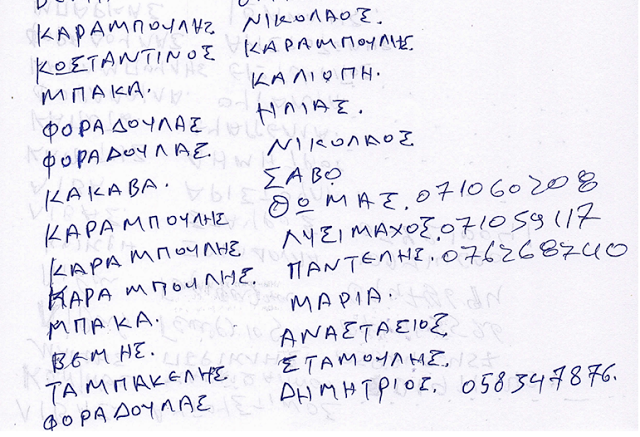 ΚΑΡΑΜΠΟΥΛΗΣ ΝΙΚΟΛΑΟΣ.
ΚΩΣΤΑΝΤΙΝΟΣ ΚΑΡΑΜΠΟΥΛΗΣ.
ΜΠΑΚΑ. ΚΑΛΙΟΠΗ.
ΦΟΡΑΔΟΥΛΑΣ ΗΛΙΑΣ.
ΦΟΡΑΔΟΥΛΑΣ. ΝΙΚΟΛΑΟΣ
ΚΑΚΑΒΑ. ΣΑΒΩ
ΚΑΡΑΜΠΟΥΛΗΣ ΘΩΜΑΣ. 071060208
ΚΑΡΑΜΠΟΥΛΗΣ ΛΥΣΙΜΑΧΟΣ. 071059117
ΚΑΡΑΜΠΟΥΛΗΣ. ΠΑΝΤΕΛΗΣ. 076268740
ΜΠΑΚΑ. ΜΑΡΙΑ.
ΒΕΜΗΣ. ΑΝΑΣΤΑΣΙΟΣ
ΤΑΜΠΑΚΕΛΗΣ ΣΤΑΜΟΥΛΗΣ.
ΦΟΡΑΔΟΥΛΑΣ ΔΗΜΗΤΡΙΟΣ. 058347876.